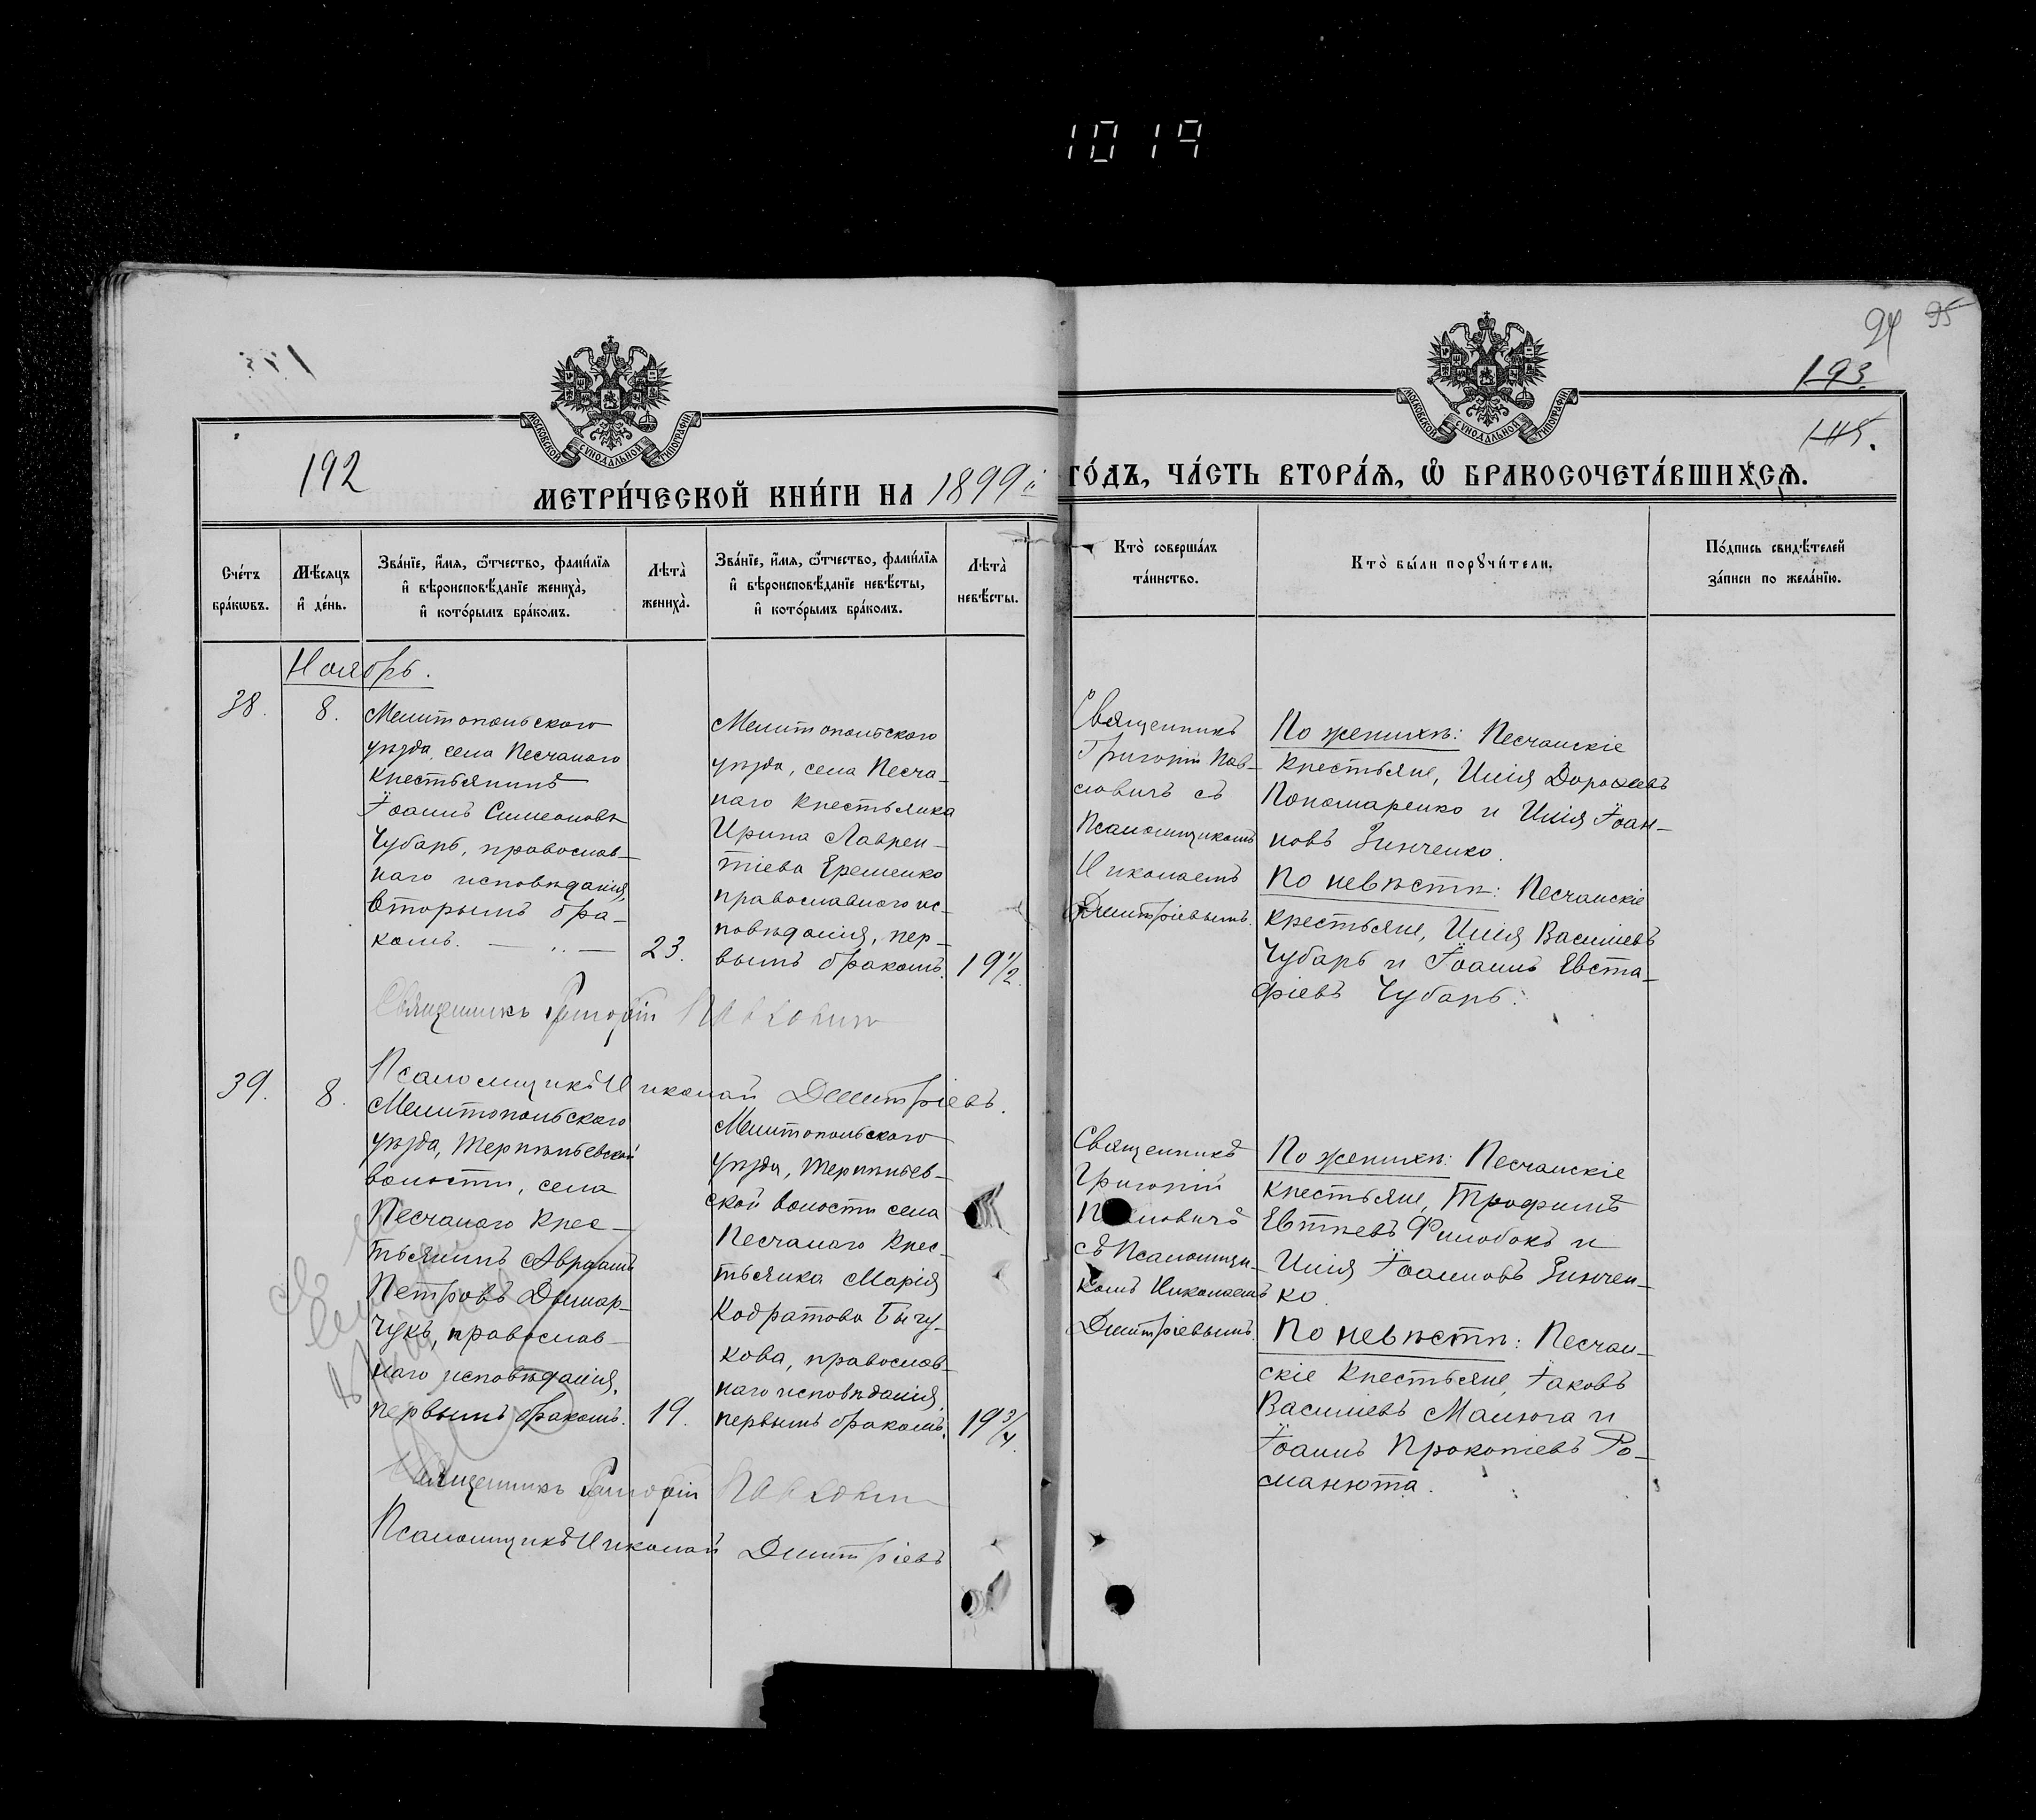 1019
94 95
193
115.
192
МОСКОВСКОЙ СѴНОДАЛЬНОЙ ТИПОГРАФІИ
МОСКОВСКОЙ СѴНОДАЛЬНОЙ ТИПОГРАФІИ
МЕТРИ́ЧЕСКОЙ КНИ́ГИ НА 1899й
ГО́ДЪ, ЧА́СТЬ ВТОРА́Я, Ѽ БРАКОСОЧЕТА́ВШИХСЯ.
Сче́тъ
бра́кѡвъ.
Мѣ́сяцъ
и҆ де́нь.
Зва́нїе, и҆́мя, ѻ҆́тчество, фами́лїя
и҆ вѣроисповѣ́данїе жениха̀,
и҆ кото́рымъ бра́комъ.
Лѣта̀
жениха̀.
Зва́нїе, и҆́мя, ѻ҆́тчество, фами́лїя
и҆ вѣроисповѣ́данїе невѣ́сты,
и҆ кото́рымъ бра́комъ.
Лѣта̀
невѣ́сты.
Кто̀ соверша́лъ
та́инство.
Кто̀ бы́ли порꙋчи́тели.
По́дпись свидѣ́телей
за́писи по жела́нїю.
Ноябрь.
38.
8.
Мелитопольскаго
уѣзда, села Песчанаго
крестьянинъ
Іоаннъ Симеоновъ
Чубарь, православ-
наго исповѣданія,
вторымъ бра-
комъ.
23.
Мелитопольскаго
уѣзда, села Песча-
наго крестьянка
Ирина Лаврен-
тіева Еременко
православнаго ис-
повѣданія, пер-
вымъ бракомъ.
19 1/2
Священникъ
Григорій Пав-
ловичъ съ
Псаломщикомъ
Николаемъ
Дмитріевымъ.
По женихѣ: Песчанскіе
крестьяне, Илія Дорофеевъ
Пономаренко и Илія Іоан-
новъ Зинченко.
По невѣстѣ: Песчанскіе
крестьяне, Илія Васильевъ
Чубарь и Іоаннъ Евста-
фіевъ Чубарь.
Священникъ Григорій Павловичъ
Псаломщикъ Николай Дмитріевъ.
39.
8.
Мелитопольскаго
уѣзда, Терпѣньевской
волости, села
Песчанаго крес-
тьянинъ Авраамъ
Петровъ Дымар-
чукъ, православ-
наго исповѣданія,
первымъ бракомъ.
19.
Мелитопольскаго
уѣзда, Терпѣньев-
ской волости села
Песчанаго крес-
тьянка Марія
Кодратова Бычу-
кова, православ-
наго исповѣданія,
первымъ бракомъ.
19 3/4.
Священникъ
Григорій
Павловичъ
съ Псаломщи-
комъ Николаемъ
Дмитріевымъ.
По женихѣ: Песчанскіе
крестьяне, Трофимъ
Евтиевъ Филобокъ и
Илія Іоанновъ Зинчен-
ко.
По невѣстѣ: Песчан-
скіе крестьяне, Іаковъ
Васильевъ Малюга и
Іоаннъ Прокопіевъ Ро-
манюта.
Священникъ Григорій Павловичъ
Псаломщикъ Николай Дмитріевъ